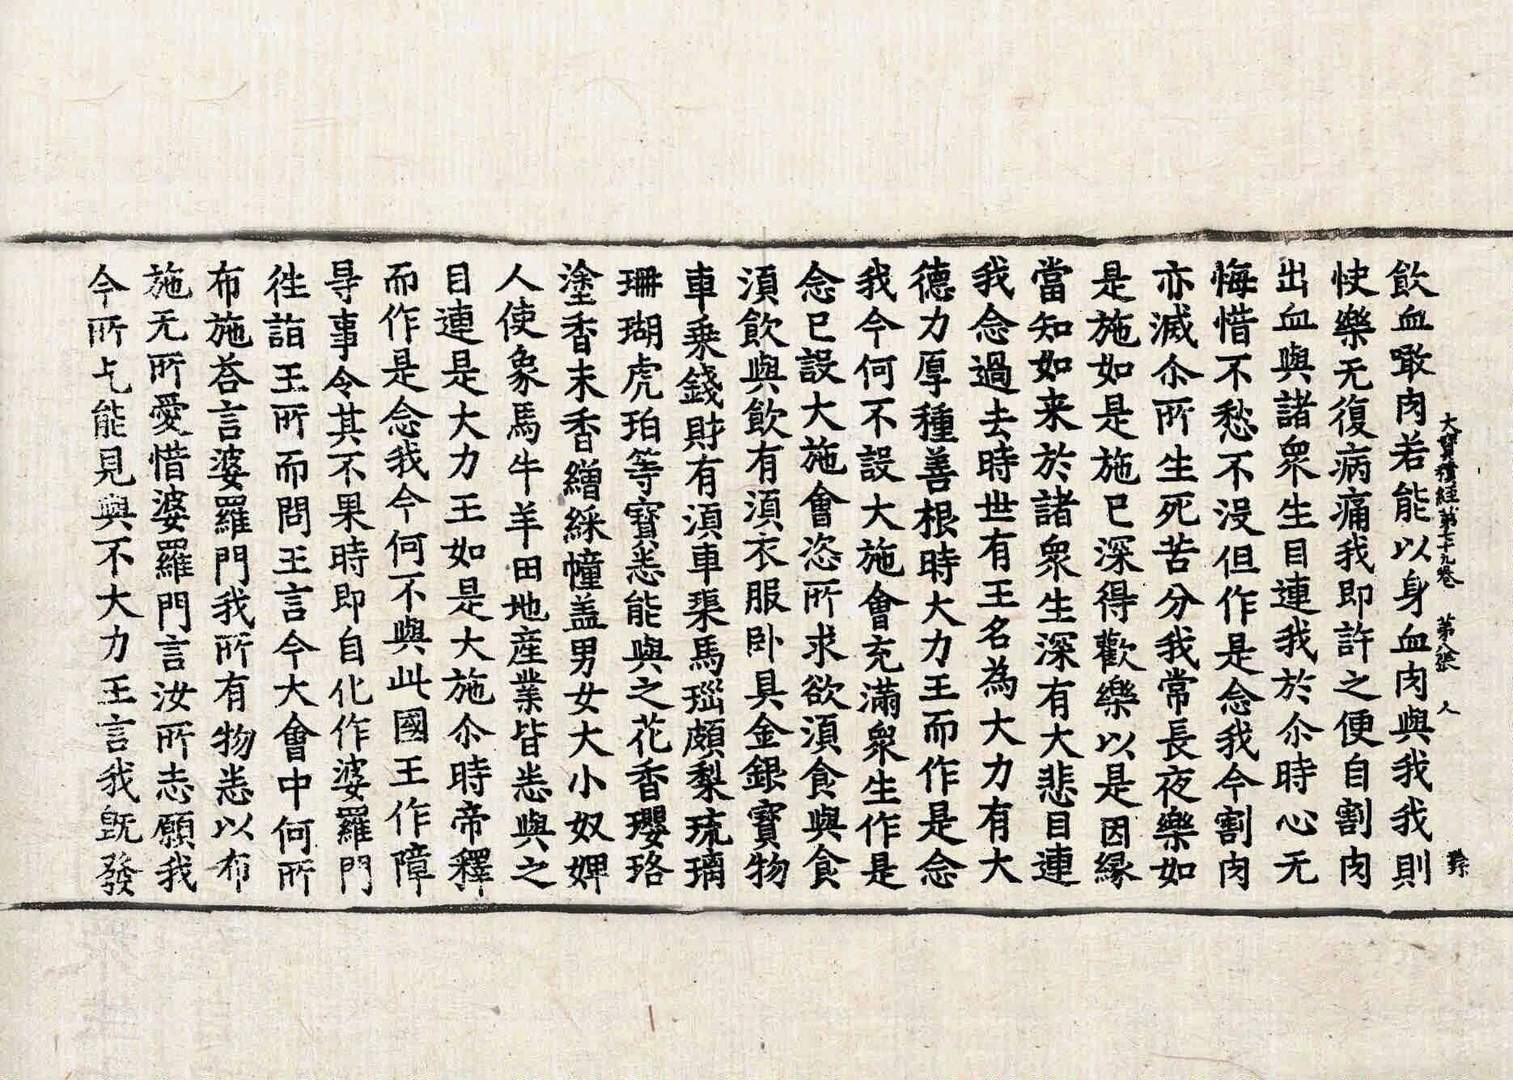 大寶積經第七十九卷 第八張 人
飲血噉肉若能以身血肉與我我則
快樂无復病痛我即許之便自割肉
出血與諸衆生目連我於尒時心无
悔惜不愁不没但作是念我今割肉
亦滅尒所生死苦分我常長夜樂如
是施如是施已深得歡樂以是因縁
當知如来於諸衆生深有大悲目連
我念過去時世有王名為大力有大
德力厚種善根時大力王而作是念
我今何不設大施會充滿衆生作是
念已設大施會恣所求欲湏食與食
湏飲與飲有湏衣服卧具金銀寳物
車乗錢財有湏車𭫗馬瑙頗梨琉璃
珊瑚虎珀等寳悉能與之花香瓔珞
塗香末香繒綵幢盖男女大小奴婢
人使象馬牛羊田地產業皆悉與之
目連是大力王如是大施尒時帝釋
而作是念我今何不與此國王作障
㝵事令其不果時即自化作婆羅門
徃詣王所而問王言今大會中何所
布施荅言婆羅門我所有物悉以布
施无所愛惜婆羅門言汝所志願我
今所乞能見與不大力王言我旣發